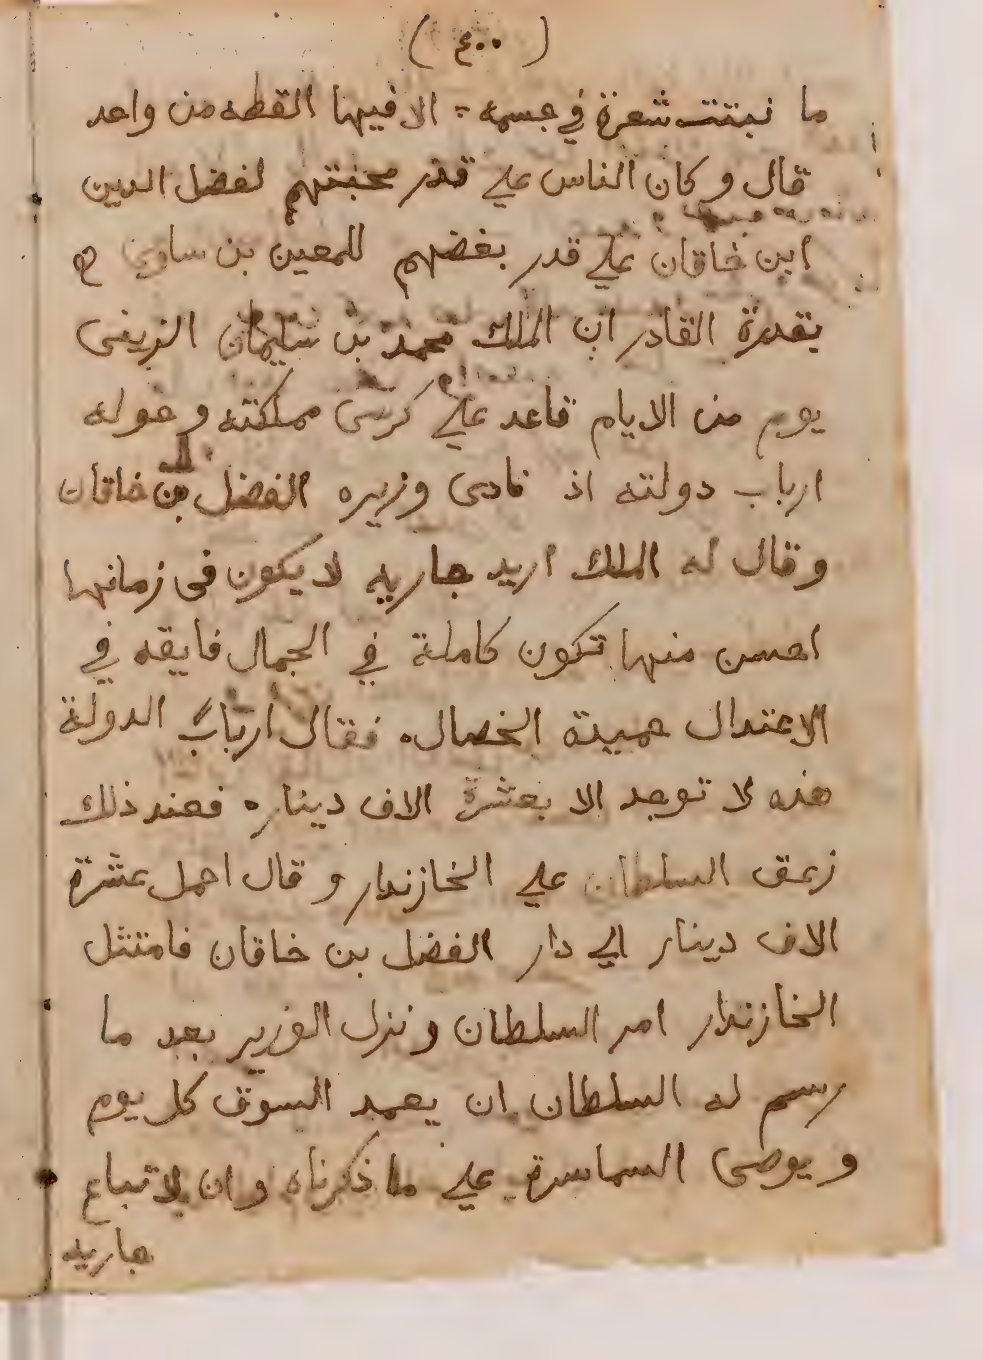 (٤٠٠)
ما نبتت شعرة في جسمه ؞ الا فيها القطه من واحد
قال وكان الناس علي قدر محبتهم لفضل الدين
ابن خاقان علي قدر بغضهم للمعين بن ساوي
بقدرة القادر ان الملك محمد بن سليمان الزينى
يوم من الايام قاعد علي كرسى مملكته وحوله
ارباب دولته اذ نادى وزيره الفضل بن خاقان
وقال له الملك اريد جاريه لا يكون فى زمانها
احسن منها تكون كاملة في الجمال فايقه في
الاعتدال حميدة الخصال. فقال ارباب الدولة
هذه لا توجد الا بعشرة الاف دينار. فعند ذلك
زعق السلطان علي الخازندار وقال احمل عشرة
الاف دينار الي دار الفضل بن خاقان فامتثل
الخازندار امر السلطان ونزل الوزير بعد ما
رسم له السلطان ان يعمد السوق كل يوم
ويوصى السماسرة علي ما ذكرناه وان لا تباع
جاريه